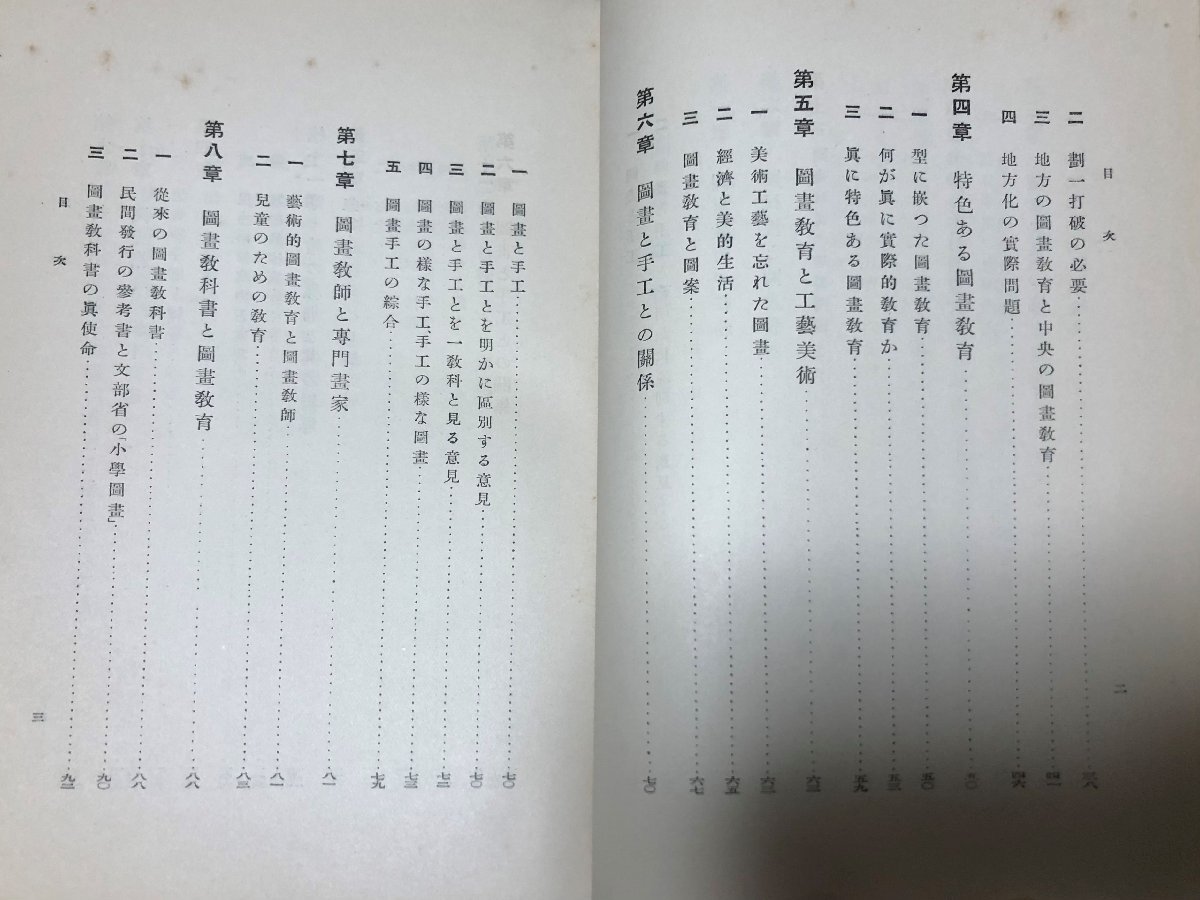 目次
二 劃一打破の必要……三八
三 地方の圖畫教育と中央の圖畫教育……四一
四 地方化の實際問題……四六
第四章 特色ある圖畫教育……五〇
一 型に嵌つた圖畫教育……五〇
二 何が眞に實際的教育か……五三
三 眞に特色ある圖畫教育……五九
第五章 圖畫教育と工藝美術……六三
一 美術工藝を忘れた圖畫……六三
二 經濟と美的生活……六五
三 圖畫教育と圖案……六七
第六章 圖畫と手工との關係……七〇
二
一 圖畫と手工……七〇
二 圖畫と手工とを明かに區別する意見……七〇
三 圖畫と手工とを一教科と見る意見……七二
四 圖畫の樣な手工、手工の樣な圖畫……七三
五 圖畫手工の綜合……七九
第七章 圖畫教師と專門畫家……八一
一 藝術的圖畫教育と圖畫教師……八一
二 兒童のための教育……八三
第八章 圖畫教科書と圖畫教育……八八
一 從來の圖畫教科書……八八
二 民間發行の參考書と文部省の「小學圖畫」……九〇
三 圖畫教科書の眞使命……九二
目次
三